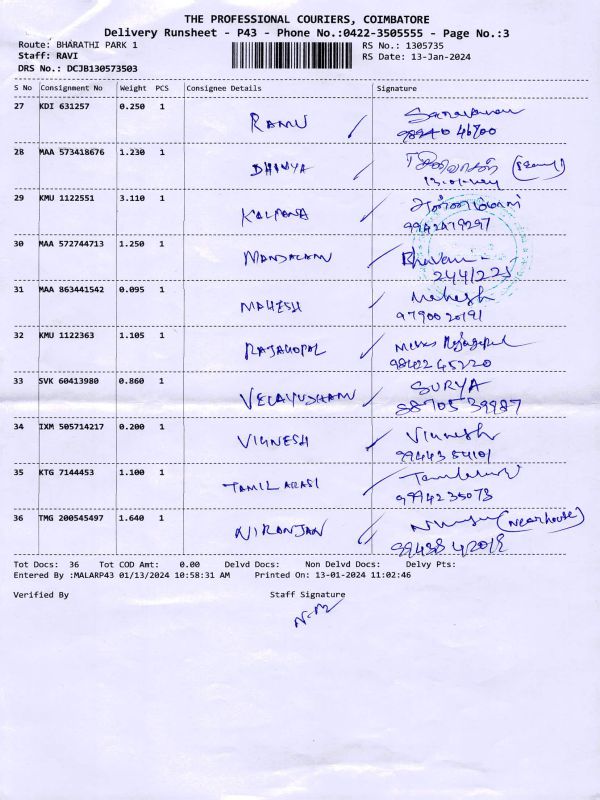 THE PROFESSIONAL COURIERS, COIMBATORE
Delivery Runsheet - P43 - Phone No.:0422-3505555 - Page No.:3
Route: BHARATHI PARK 1 RS No.: 1305735
Staff: RAVI RS Date: 13-Jan-2024
DRS No.: DCJB130573503
S No Consignment No Weight PCS Consignee Details Signature
27 KDI 631257 0.250 1 RAMU
98940 46700
28 MAA 573418676 1.230 1 DHANYA
29 KMU 1122551 3.110 1 KALPANA
9942479297
30 MAA 572744713 1.250 1
31 MAA 863441542 0.095 1 MAHESH Mahesh
9790020191
32 KMU 1122363 1.105 1 RAJAGOPAL
98422 45220
33 SVK 60413980 0.860 1 VELAYUDHAM SURYA
88705 39987
34 IXM 505714217 0.200 1 VIGNESH Vignesh
99443 54101
35 KTG 7144453 1.100 1 TAMIL ARASI
9994235073
36 TMG 200545497 1.640 1 NIRANJAN (Near house)
Tot Docs: 36 Tot COD Amt: 0.00 Delvd Docs: Non Delvd Docs: Delvy Pts:
Entered By :MALARP43 01/13/2024 10:58:31 AM Printed On: 13-01-2024 11:02:46
Verified By Staff Signature